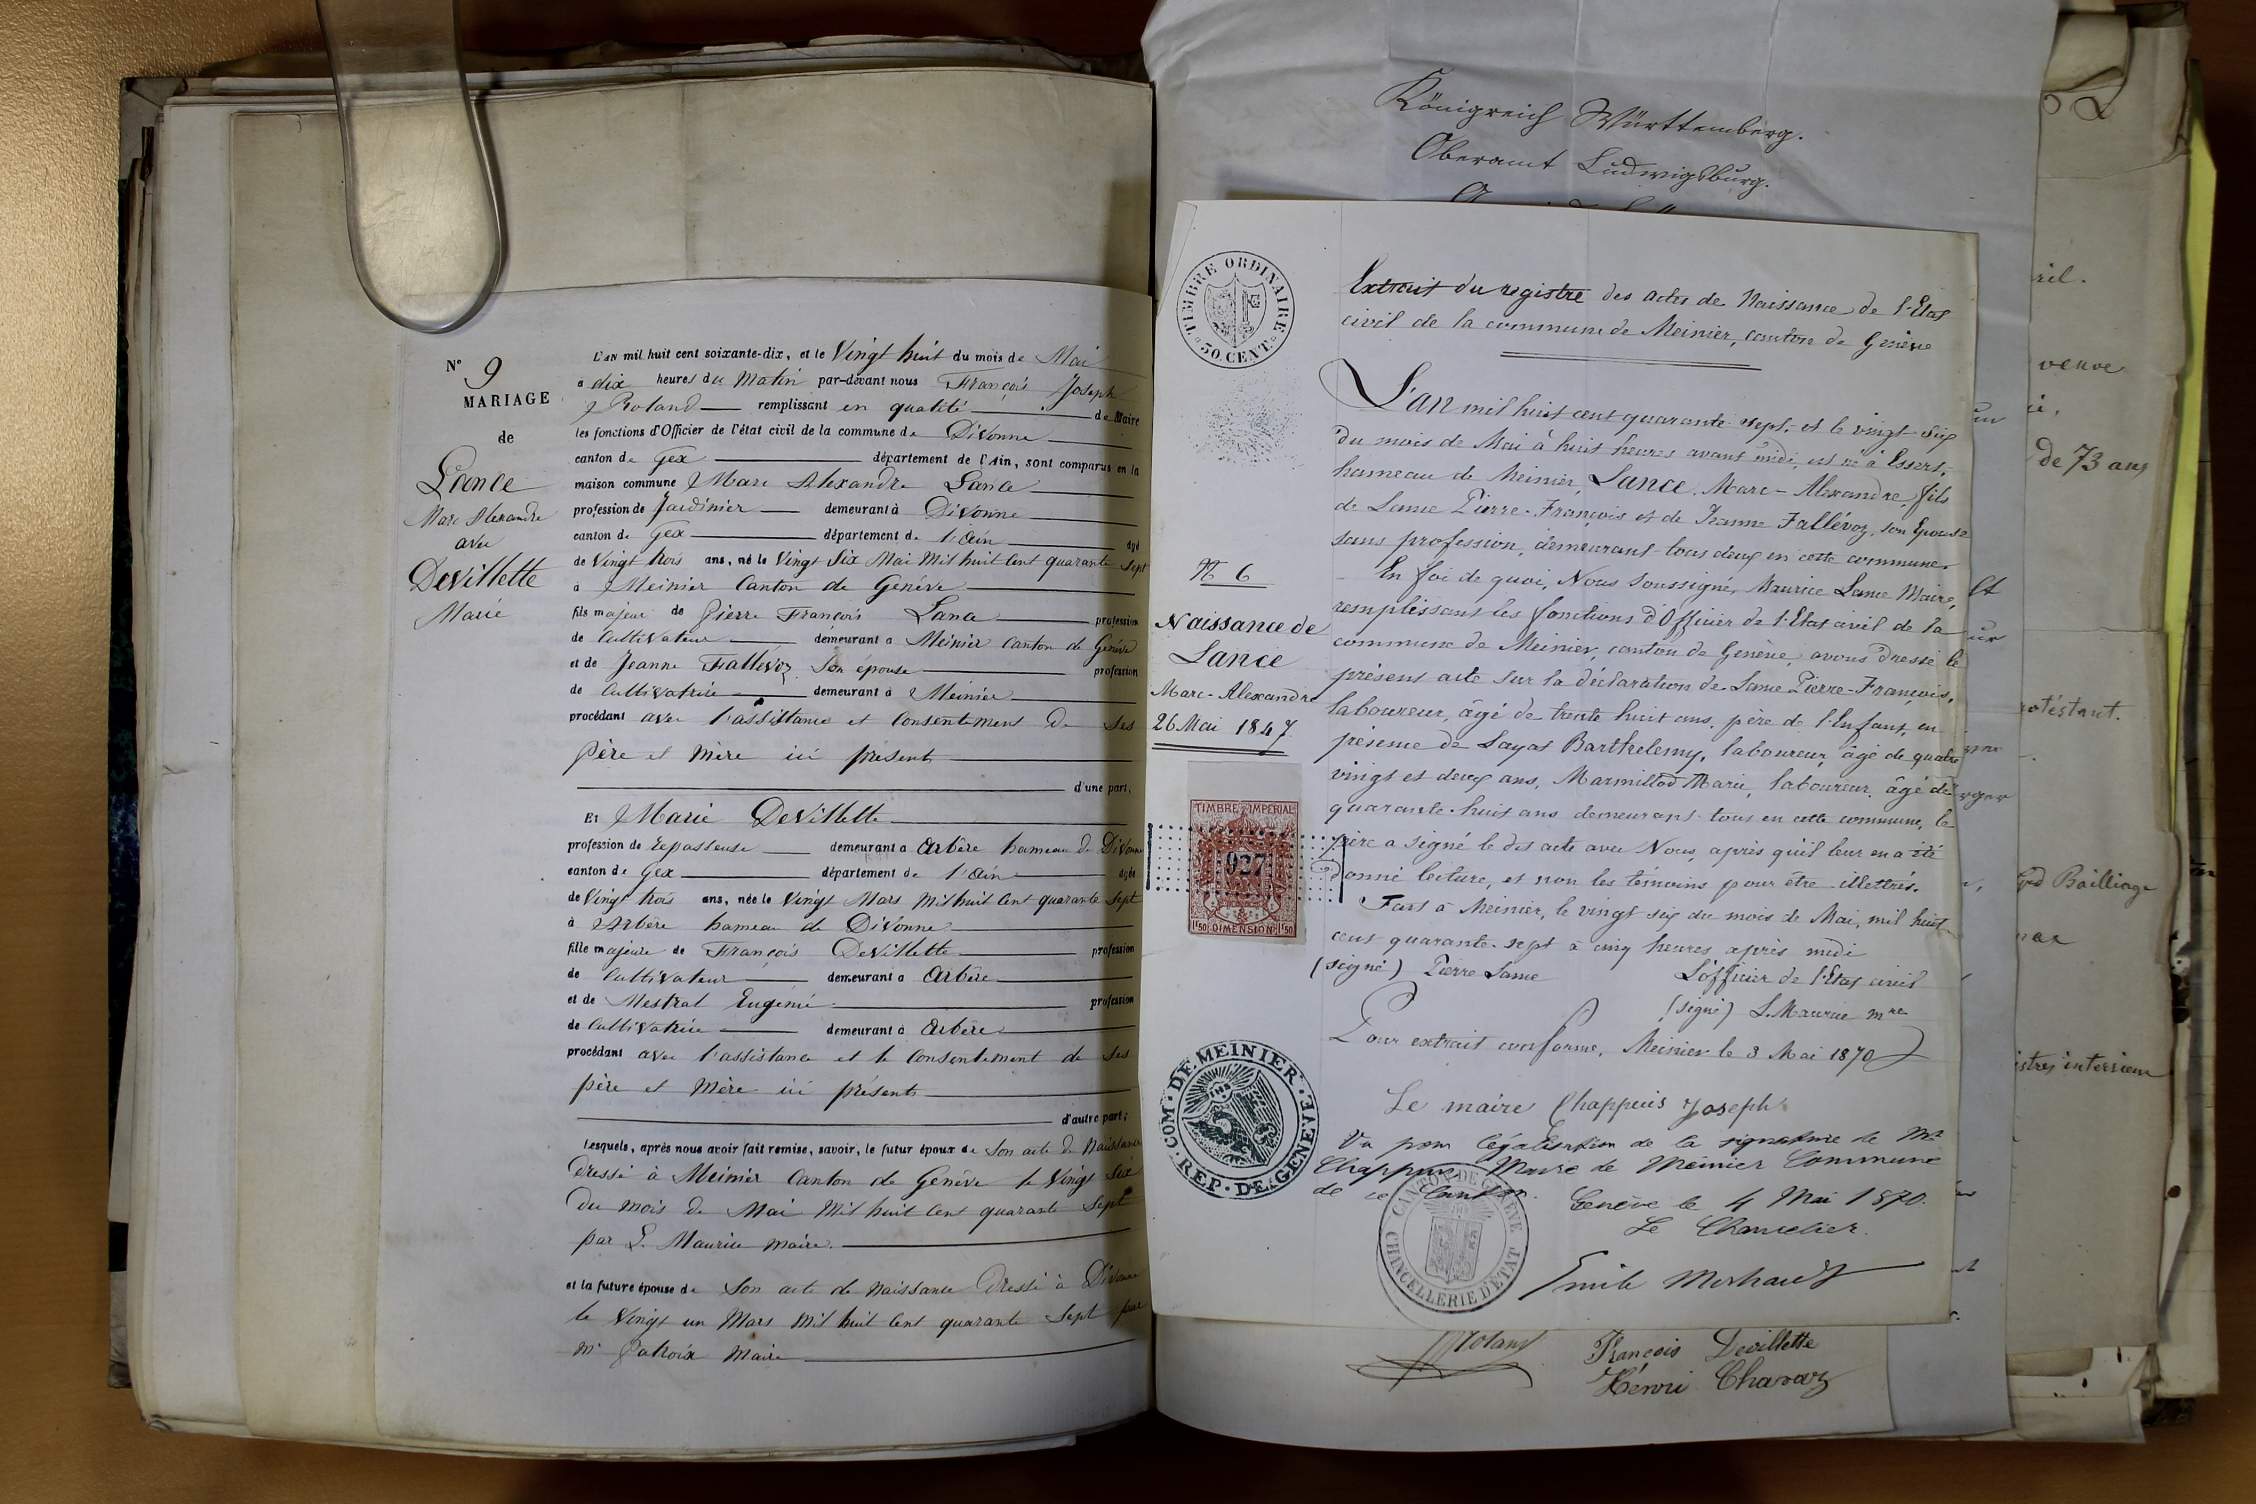 N° 9
MARIAGE
de
Lance
Marc Alexandre
avec
Devillette
Marie
L'AN mil huit cent soixante-dix, et le Vingt huit du mois de Mai
à dix heures du Matin par-devant nous François Joseph
Roland remplissant en qualité de Maire
les fonctions d'Officier de l'état civil de la commune de Divonne
canton de Gex département de l'Ain, sont comparus en la
maison commune Marc Alexandre Lance
profession de Jardinier demeurant à Divonne
canton de Gex département de l'Ain âgé
de Vingt trois ans, né le Vingt Six Mai Mil huit Cent quarante Sept
à Meinier Canton de Genève
fils majeur de Pierre François Lance profession
de Cultivateur demeurant à Meinier Canton de Genève
et de Jeanne Fallévoz Son épouse profession
de Cultivatrice demeurant à Meinier
procédant avec l'assistance et Consentement de Ses
père et mère ici présents
d'une part,
Et Marie Devillette
profession de Repasseuse demeurant à Arbère hameau de Divonne
canton de Gex département de l'Ain âgée
de Vingt trois ans, née le Vingt Mars Mil huit Cent quarante Sept
à Arbère hameau de Divonne
fille majeure de François Devillette profession
de Cultivateur demeurant à Arbère
et de Mestral Eugénie profession
de Cultivatrice demeurant à Arbère
procédant avec l'assistance et le Consentement de Ses
père et Mère ici présents
d'autre part;
Lesquels, après nous avoir fait remise, savoir, le futur époux de Son acte de Naissance
Dressé à Meinier Canton de Genève le Vingt Six
Du mois de Mai Mil huit Cent quarante Sept
par L. Maurice maire.
et la future épouse de Son acte de Naissance Dressé à Divonne
le Vingt un Mars Mil huit Cent quarante Sept par
Mr Patroix Maire
Königreich Württemberg.
Oberamt Ludwigsburg.
TIMBRE ORDINAIRE
30 CENT
Extrait du registre des actes de Naissance de l'Etat
civil de la commune de Meinier, canton de Genève
L'an mil huit cent quarante-sept et le vingt-six
du mois de Mai à huit heures avant midi, est né à Essert,
hameau de Meinier, Lance, Marc-Alexandre, fils
de Lance Pierre-François et de Jeanne Fallévoz, son Epouse
sans profession, demeurant tous deux en cette commune.
En foi de quoi, Nous Soussigné, Maurice Lance Maire,
remplissant les fonctions d'Officier de l'Etat civil de la
commune de Meinier, canton de Genève, avons dressé le
présent acte sur la déclaration de Lance Pierre-François,
laboureur, âgé de trente huit ans, père de l'Enfant, en
présence de Layat Barthelemy, laboureur, âgé de quatre
vingt et deux ans, Marmillod Marie, laboureur, âgé de
quarante-huit ans demeurant tous en cette commune, le
père a signé le dit acte avec Nous, après qu'il leur en a été
donné lecture, et non les témoins pour être illettrés.
Fait à Meinier, le vingt six du mois de Mai, mil huit
cent quarante-sept à cinq heures après midi
(signé) Pierre Lance L'officier de l'Etat civil
(signé) L. Maurice mre
Pour extrait conforme, Meinier le 3 Mai 1870
Le maire Chappuis Joseph
Vu pour légalisation de la signature de Mr
Chappuis Maire de Meinier Commune
de ce Canton.
Genève le 4 Mai 1870.
Le Chancelier.
N° 6
Naissance de
Lance
Marc-Alexandre
26 Mai 1847.
TIMBRE IMPERIAL
927
1f50 DIMENSION 1f50
COM. DE MEINIER.
REP. DE GENEVE
CANTON DE GENEVE
CHANCELLERIE D'ETAT
Roland
François Devillette
Henri Charvoz
veuve
de 73 ans
Bailliage